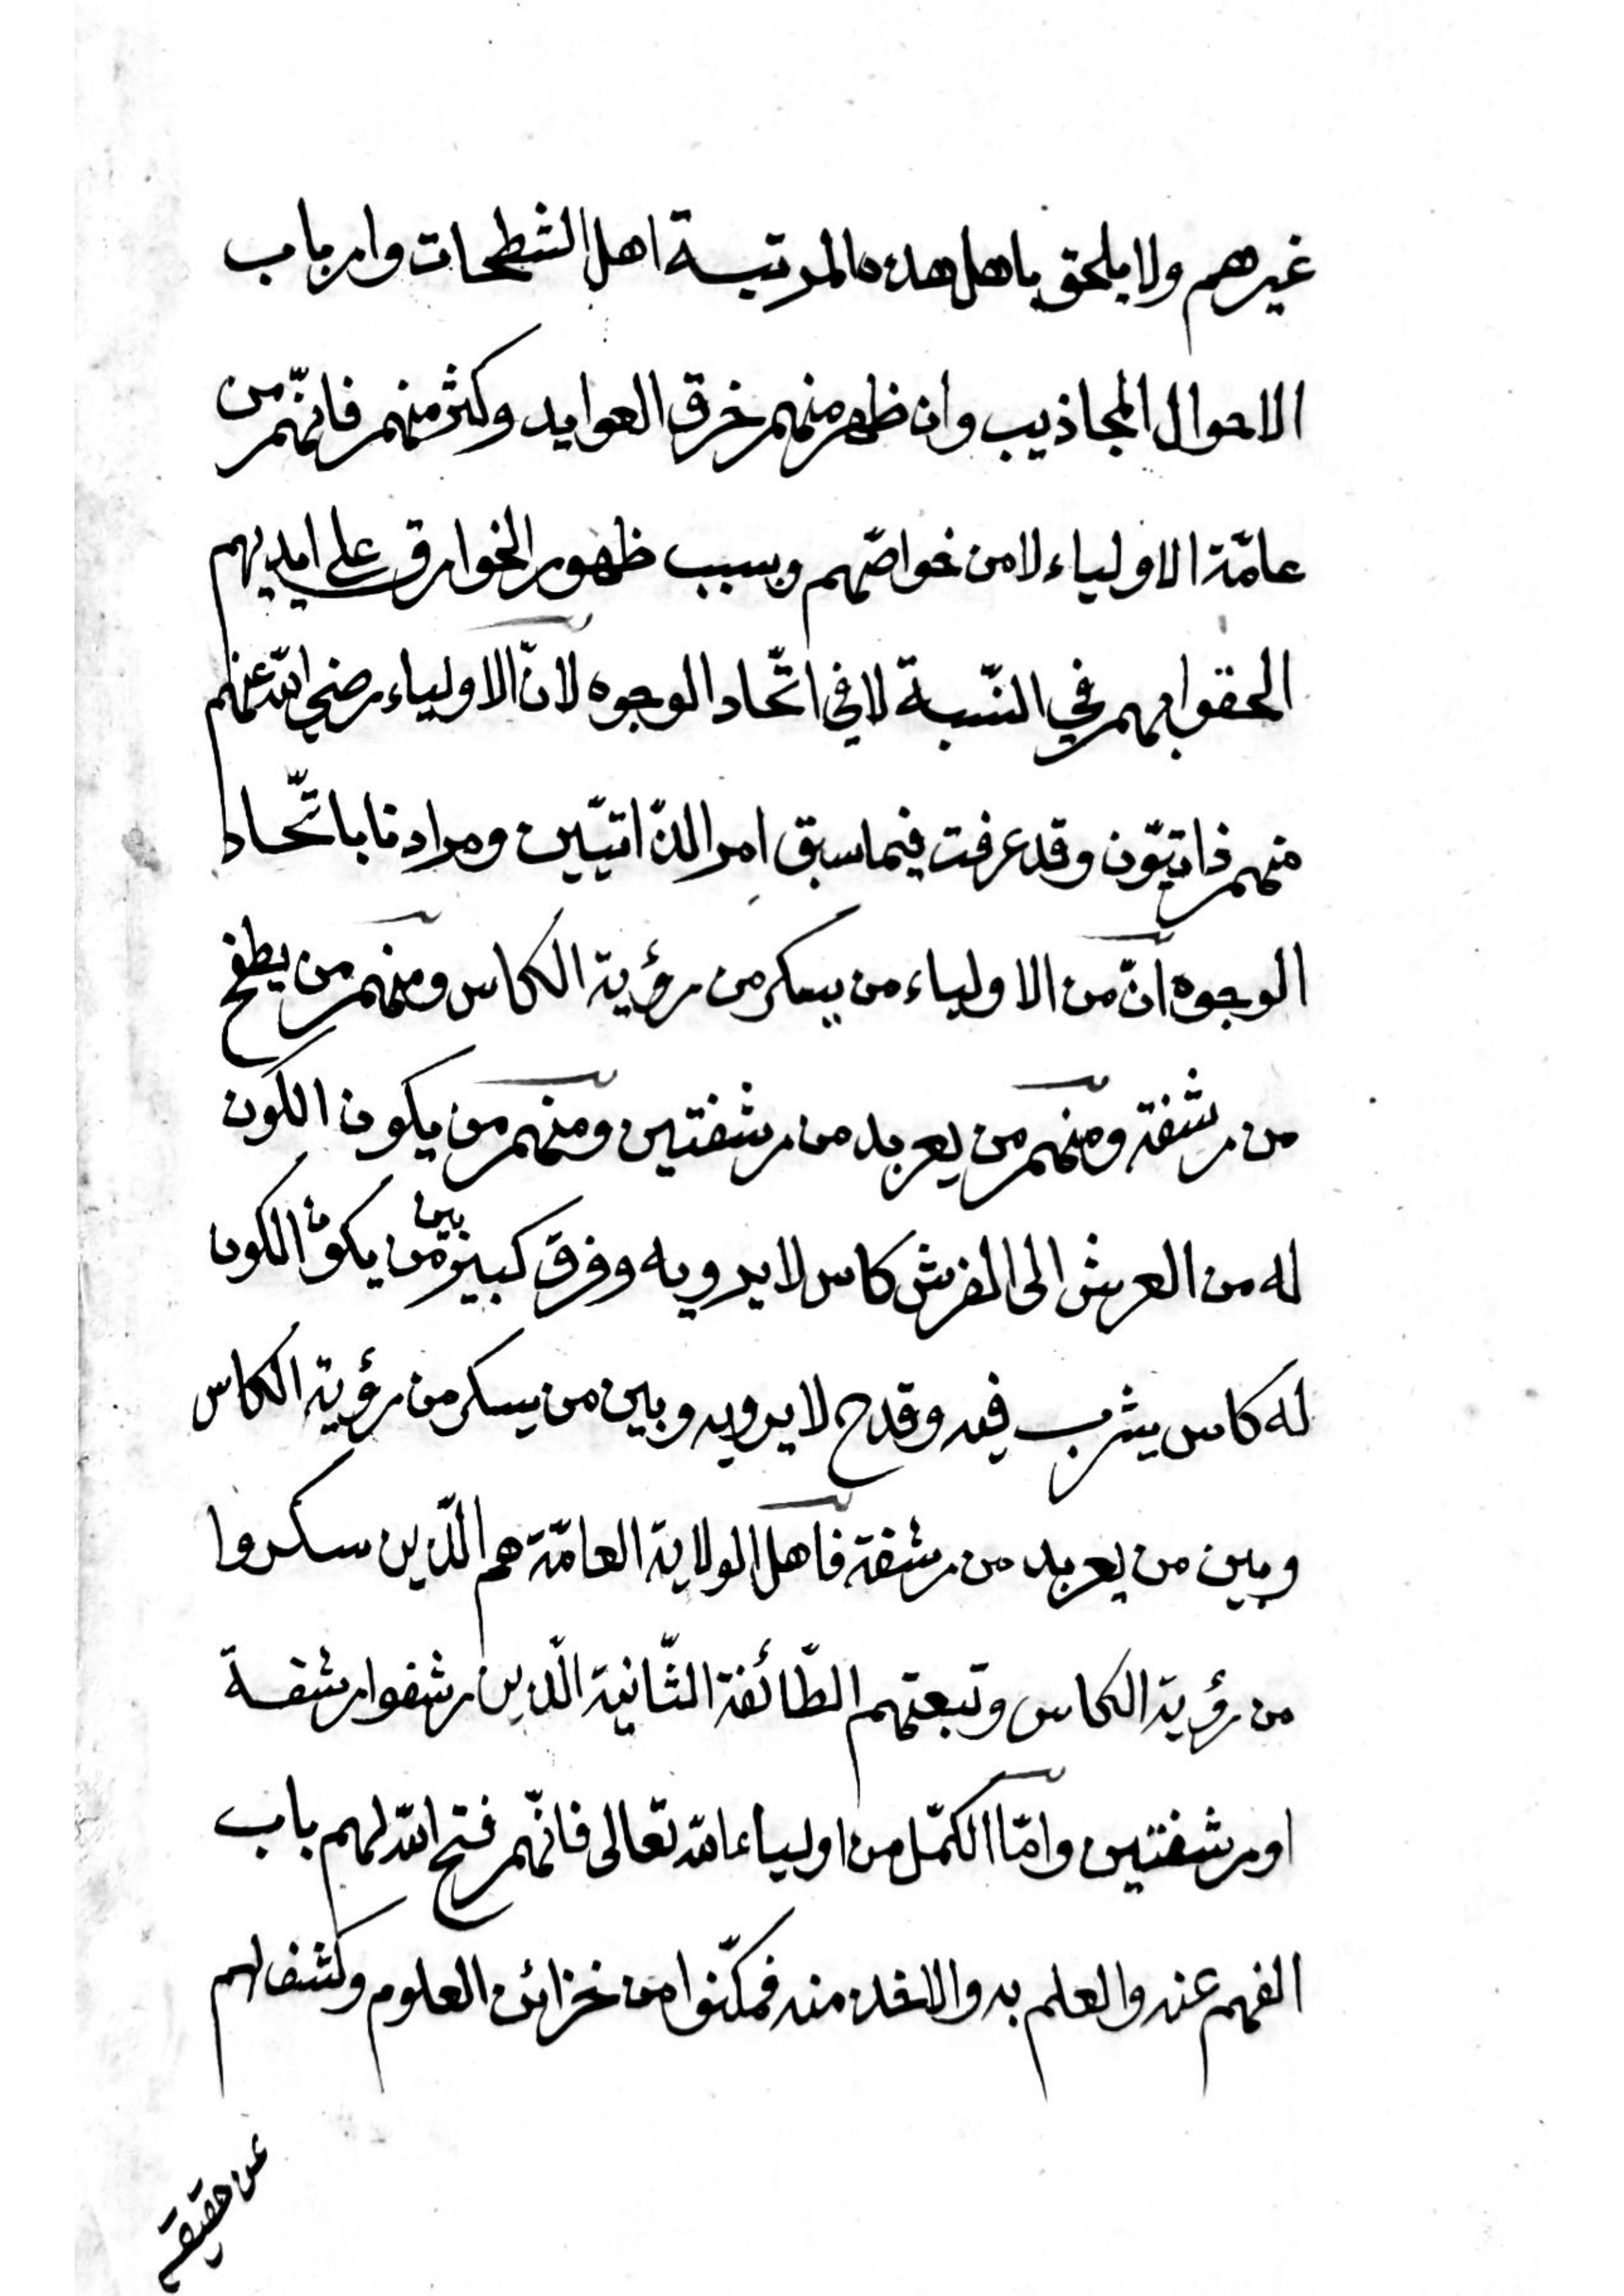 غيرهم ولا يلحق باهل هذه المرتبسة اهل الشطحات وارباب
الاحوال المجاذيب وان ظهر منهم خرق العوايد وكثر منهم فانّهم من
عامّة الاولياء لا من خواصّهم وبسبب ظهور الخوارق على ايديهم
الحقوا بهم في النّسبة لا في اتّحاد الوجوه لانّ الاولياء رضي الله عنهم
منهم ذاتيّون وقد عرفت فيما سبق امر الذّاتيّين ومرادنا باتّحاد
الوجوه انّ من الاولياء من يسكر من رؤية الكاس ومنهم من يطفح
من رشفة ومنهم من يعربد من رشفتين ومنهم من يكون الكون
له من العرش الى الفرش كاس لا يرويه وفرق كبير بين من يكون الكون
له كاس يشرب فيه وقدح لا يرويه وبين من يسكر من رؤية الكاس
وبين من يعربد من رشفة فاهل الولاية العامّة هم الّذين سكروا
من رؤية الكاس وتبعتهم الطّائفة الثّانية الّذين رشفوا رشفة
او رشفتين وامّا الكمّل من اولياء الله تعالى فانّهم فتح الله لهم باب
الفهم عنه والعلم به والاخذ منه فمكّنوا من خزائن العلوم وكشف لهم
عن حقيقة